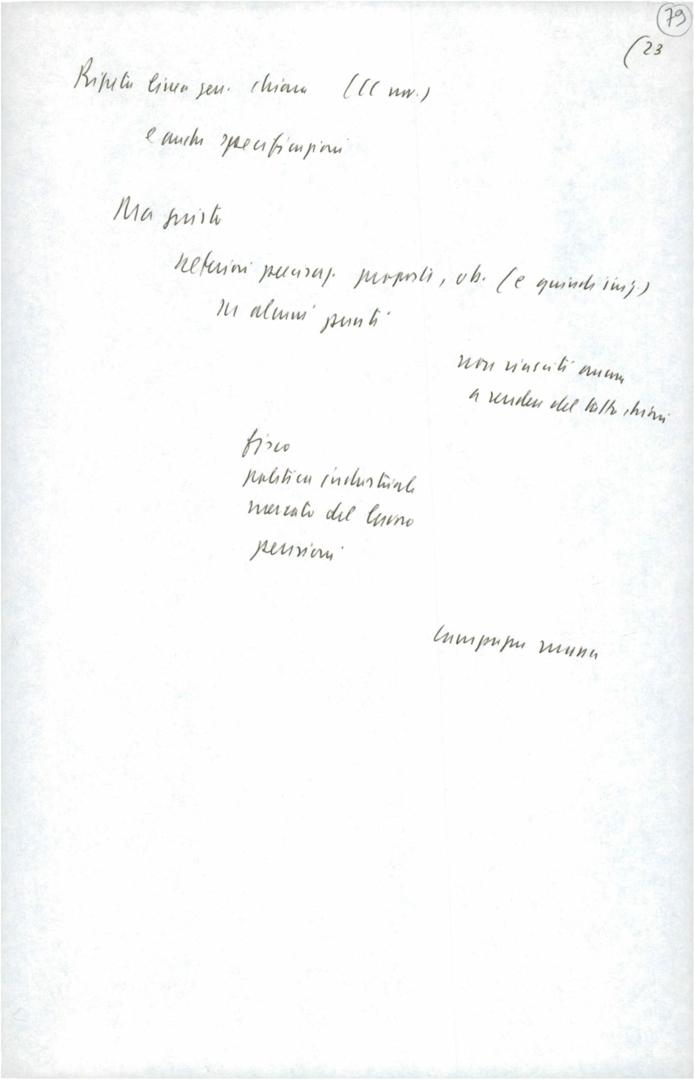 79
(23
Ripeto linea gen. chiara (CC nov.)
e anche specificazioni
Ma giusto
ulteriori precisaz. proposte, ob. (e quindi iniz.)
su alcuni punti
non riusciti ancora
a rendere del tutto chiari
fisco
politica industriale
mercato del lavoro
pensioni
campagna